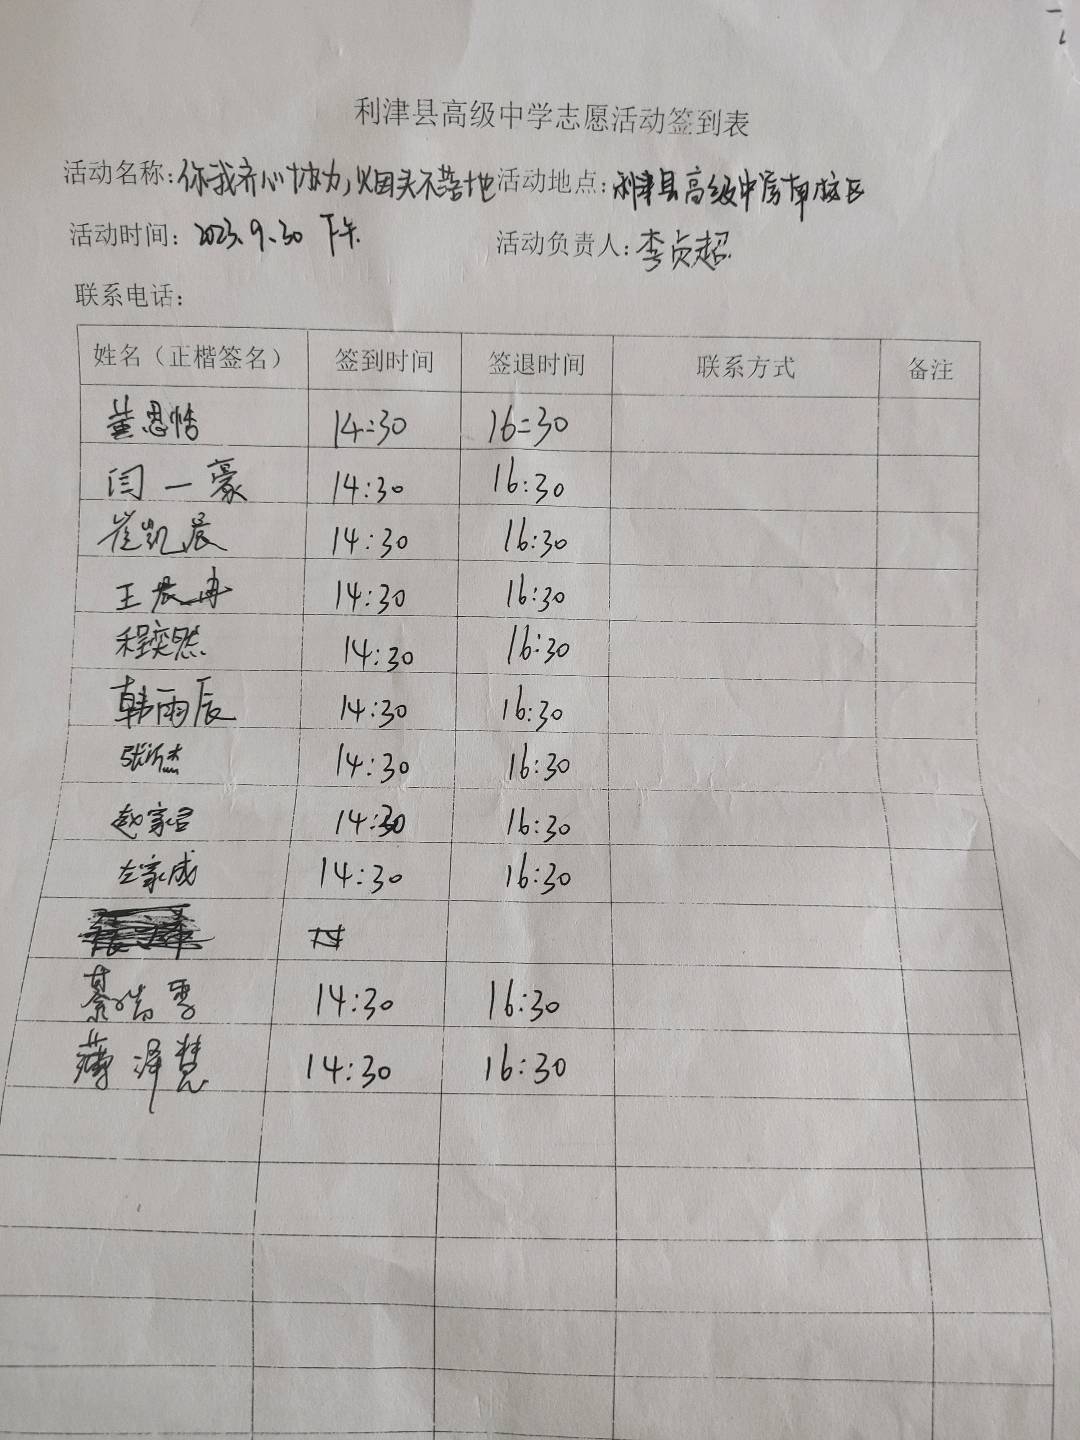 利津县高级中学志愿活动签到表
活动名称:你我齐心协力,烟头不落地 活动地点:利津县高级中学南校区
活动时间: 2023.9.30 下午 活动负责人:李贞超
联系电话:
姓名（正楷签名） 签到时间 签退时间 联系方式 备注
董思恬 14:30 16:30
闫一豪 14:30 16:30
崔凯晨 14:30 16:30
王晨冉 14:30 16:30
程奕然 14:30 16:30
韩雨辰 14:30 16:30
张沂杰 14:30 16:30
赵家君 14:30 16:30
左家成 14:30 16:30
綦浩雯 14:30 16:30
薄泽慧 14:30 16:30